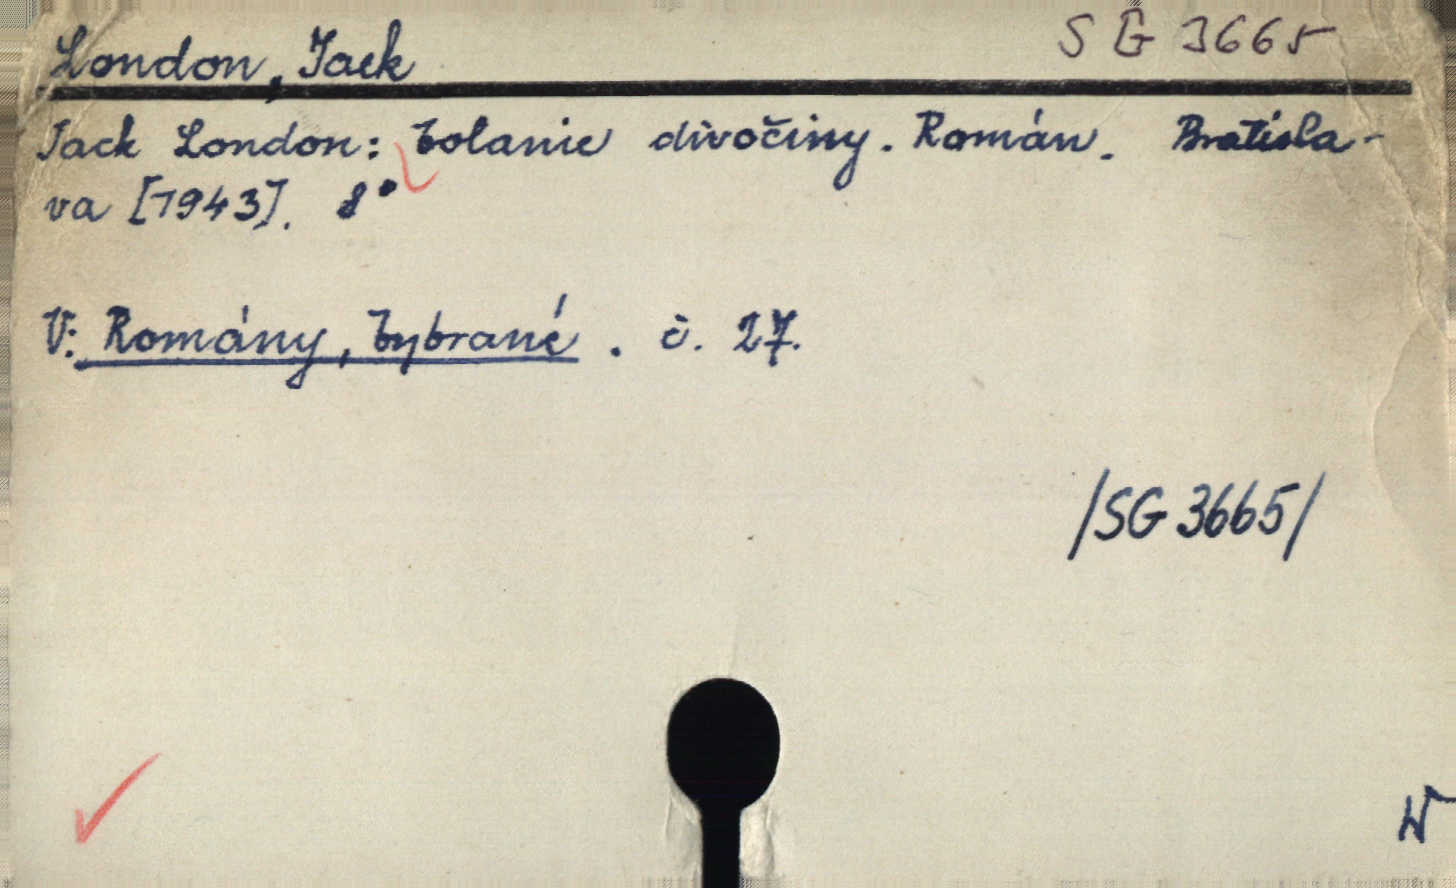 London, Jack
SG 3665
Jack London: Volanie divočiny. Román. Bratisla-
va [1943]. 8°
V: Romány, Vybrané. č. 27.
/SG 3665/